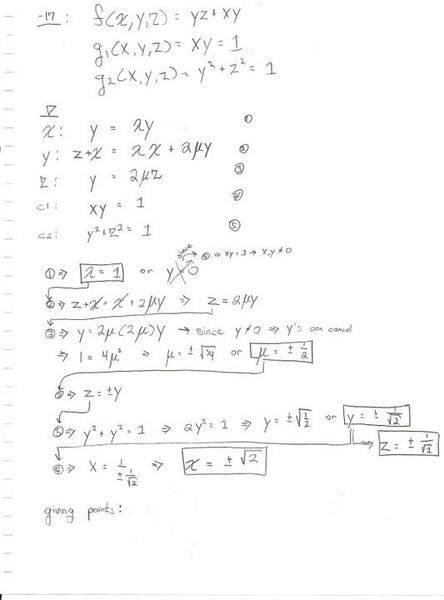 -17: f(x,y,z) = yz + xy
g₁(x,y,z) = xy = 1
g₂(x,y,z) = y² + z² = 1
∇
x: y = λy ①
y: z+x = λx + 2μy ②
z: y = 2μz ③
C1: xy = 1 ④
C2: y²+z² = 1 ⑤
since ④ ⇒ xy=1 → x,y≠0
① ⇒ λ = 1 or y=0
② ⇒ z+x = x + 2μy ⇒ z = 2μy
③ ⇒ y = 2μ(2μ)y → since y≠0 ⇒ y's can cancel
⇒ 1 = 4μ² ⇒ μ = ±√¼ or μ = ± 1/2
⇒ z = ±y
⑤ ⇒ y² + y² = 1 ⇒ 2y² = 1 ⇒ y = ±√½ or y = ± 1/√2
⇒ z = ± 1/√2
④ ⇒ x = 1/(± 1/√2) ⇒ x = ±√2
giving points: